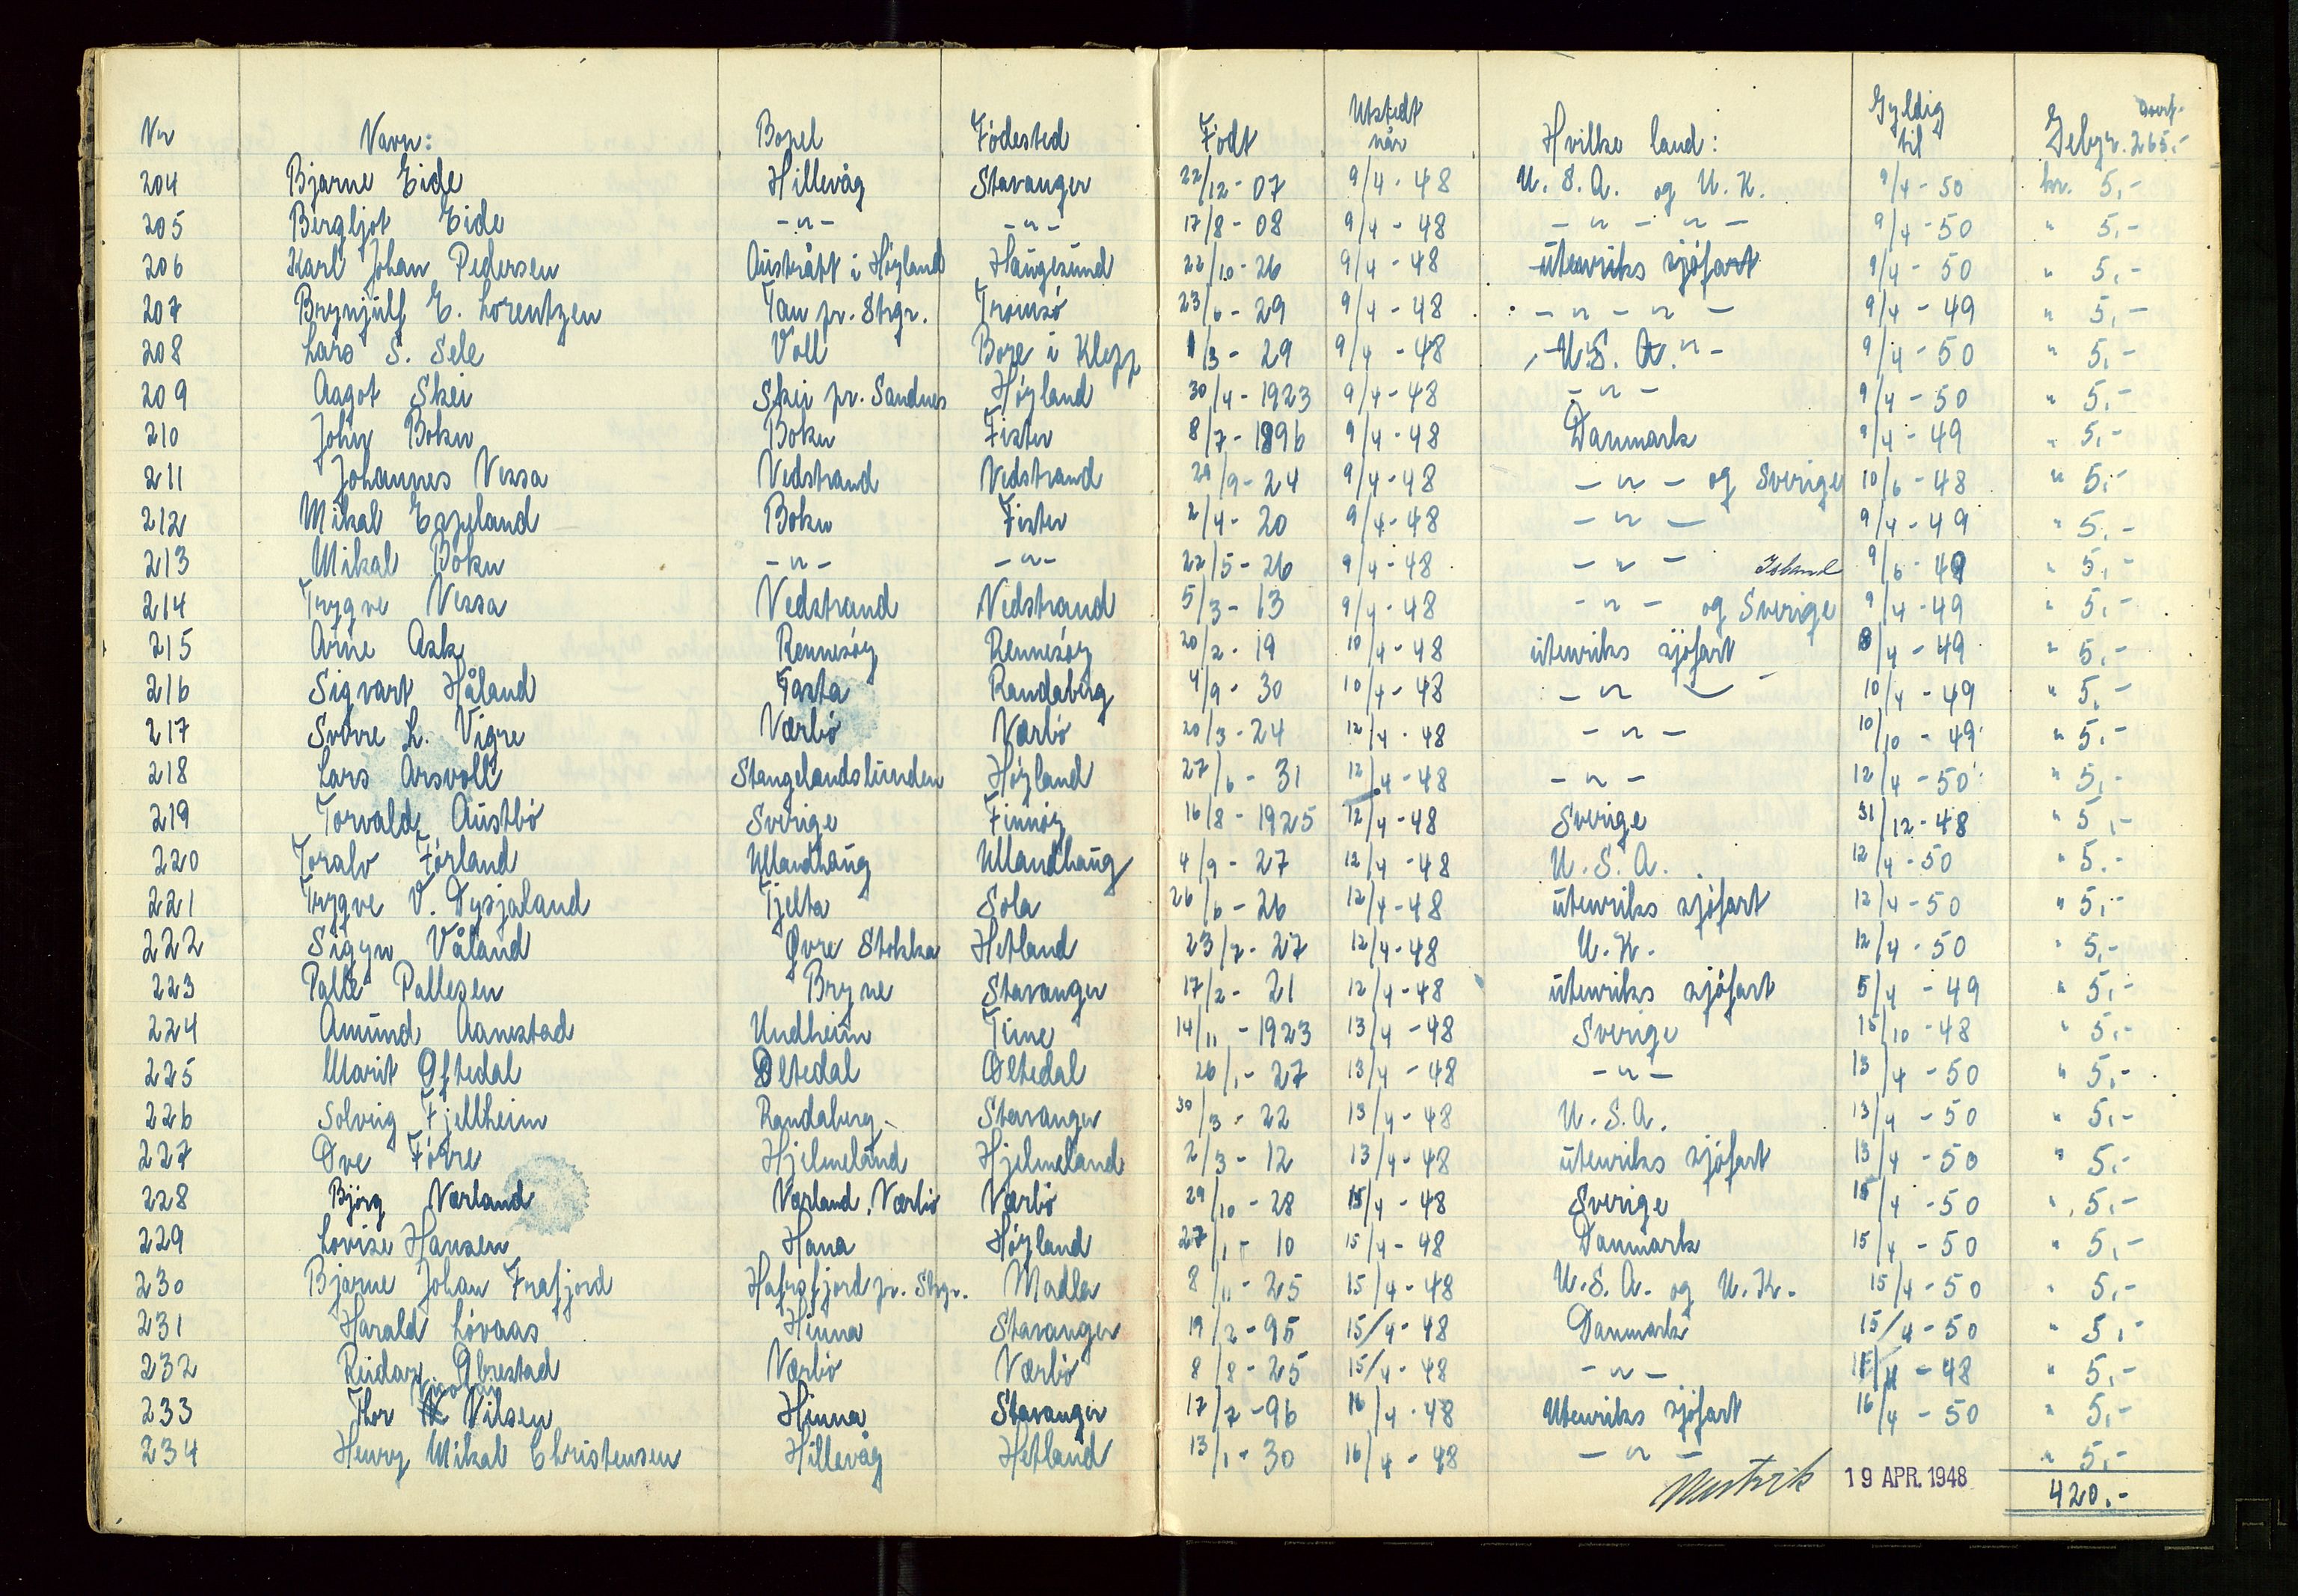 Nr Navn: Bopel Födested Födt Utstedt når Hvilke land: Gyldig til Gebyr. Overf. 265,-
204 Bjarne Eide Hillevåg Stavanger 22/12-07 9/4-48 U.S.A. og U.K. 9/4-50 kr. 5,-
205 Bergljot Eide -"- -"- 17/8-08 9/4-48 -"-"- 9/4-50 " 5,-
206 Karl Johan Pedersen Austrått i Höyland Haugesund 22/10-26 9/4-48 utenriks sjöfart 9/4-50 " 5,-
207 Brynjulf E. Lorentzen Tau pr. Stvgr. Tromsö 23/6-29 9/4-48 -"-"- 9/4-49 " 5,-
208 Lars S. Sele Voll Bore i Klepp 1/3-29 9/4-48 U.S.A. 9/4-50 " 5,-
209 Aagot Skei Skei pr. Sandnes Höyland 30/4-1923 9/4-48 -"- 9/4-50 " 5,-
210 John Bokn Bokn Fister 8/7-1896 9/4-48 Danmark 9/4-49 " 5,-
211 Johannes Nessa Nedstrand Nedstrand 29/9-24 9/4-48 -"- og Sverige 10/6-48 " 5,-
212 Mikal Espeland Bokn Fister 2/4-20 9/4-48 -"- 9/4-49 " 5,-
213 Mikal Bokn -"- -"- 22/5-26 9/4-48 -"- 9/6-49 " 5,-
Island
214 Trygve Nessa Nedstrand Nedstrand 5/3-13 9/4-48 -"- og Sverige 9/4-49 " 5,-
215 Arne Ask Rennesöy Rennesöy 20/2-19 10/4-48 utenriks sjöfart 8/4-49 " 5,-
216 Sigvart Håland Tasta Randaberg 4/9-30 10/4-48 -"- 10/4-49 " 5,-
217 Sverre L. Vigre Nærbö Nærbö 20/3-24 12/4-48 -"- 10/10-49 " 5,-
218 Lars Arsvoll Stangelandslunden Höyland 27/6-31 12/4-48 -"- 12/4-50 " 5,-
219 Torvald Austbö Sverige Finnöy 16/8-1925 12/4-48 Sverige 31/12-48 " 5,-
220 Toralv Förland Ullandhaug Ullandhaug 4/9-27 12/4-48 U.S.A. 12/4-50 " 5,-
221 Trygve V. Dysjaland Tjelta Sola 26/6-26 12/4-48 utenriks sjöfart 12/4-50 " 5,-
222 Sigyn Våland Øvre Stokka Hetland 23/7-27 12/4-48 U.K. 12/4-50 " 5,-
223 Palle Pallesen Bryne Stavanger 17/2-21 12/4-48 utenriks sjöfart 5/4-49 " 5,-
224 Amund Aanestad Undheim Time 14/11-1923 13/4-48 Sverige 15/10-48 " 5,-
225 Marit Oftedal Oltedal Oltedal 26/1-27 13/4-48 -"- 13/4-50 " 5,-
226 Solveig Fjellheim Randaberg Stavanger 30/3-22 13/4-48 U.S.A. 13/4-50 " 5,-
227 Ove Förre Hjelmeland Hjelmeland 2/3-12 13/4-48 utenriks sjöfart 13/4-50 " 5,-
228 Björg Nærland Nærland, Nærbö Nærbö 29/10-28 15/4-48 Sverige 15/4-50 " 5,-
229 Lovise Hansen Hana Höyland 27/1-10 15/4-48 Danmark 15/4-50 " 5,-
230 Bjarne Johan Frafjord Hafrsfjord pr. Stvgr. Madla 8/11-25 15/4-48 U.S.A. og U.K. 15/4-50 " 5,-
231 Harald Lövaas Hinna Stavanger 19/2-95 15/4-48 Danmark 15/4-50 " 5,-
232 Reidar Obrestad Nærbö Nærbö 8/8-25 15/4-48 -"- -48 " 5,-
233 Thor Nilsen Hinna Stavanger 17/7-96 16/4-48 Utenriks sjöfart 16/4-50 " 5,-
234 Henry Mikal Christensen Hillevåg Hetland 13/1-30 16/4-48 -"- " 5,-
19 APR. 1948 420,-